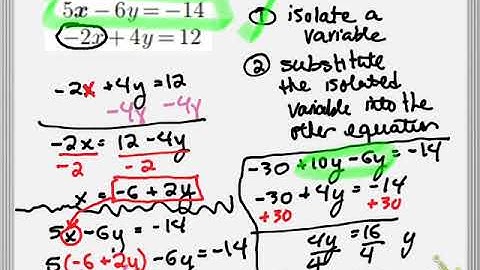 5x − 6y = −14
−2x + 4y = 12
① isolate a
variable
② substitute
the isolated
variable into the
other equation
-2x + 4y = 12
-4y -4y
-2x = 12 - 4y
-2 -2
x = -6 + 2y
5x - 6y = -14
5(-6 + 2y) - 6y = -14
-30 + 10y - 6y = -14
-30 + 4y = -14
+30 +30
4y = 16 y
4 4